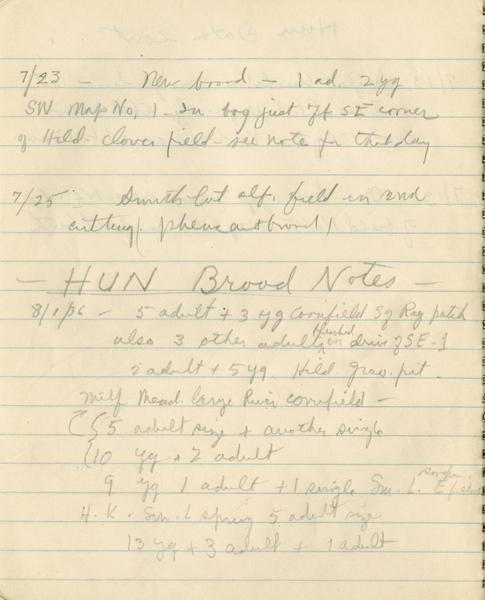 7/23 - New brood - 1 ad. 2 yg
SW Map No. 1 - In bog just of SE corner
of Hild. clover field - see note for that day
7/25 Smith Cut alf. field in 2nd
cutting (pheasant brood)
- HUN Brood Notes -
8/1/36 - 5 adult + 3 yg cornfield Sq Rag. patch
also 3 other adults flushed in drive of SE-1
2 adult + 5 yg. Hild. grav. pit.
Milf Mead. large cornfield -
5 adult size + another single
10 yg + 2 adult
9 yg 1 adult + 1 single Sm. L. E
H. K. Sm. L spring 5 adult size
13 yg + 3 adult + 1 adult